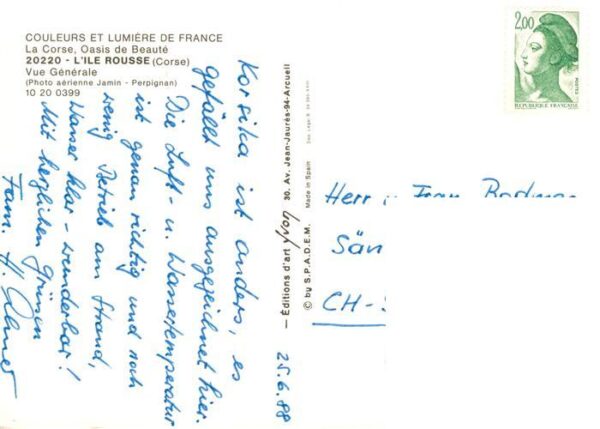 COULEURS ET LUMIÈRE DE FRANCE
La Corse, Oasis de Beauté
20220 - L'ILE ROUSSE (Corse)
Vue Générale
(Photo aérienne Jamin - Perpignan)
10 20 0399
Korsika ist anders, es
gefällt uns ausgezeichnet hier.
Die Luft- u. Wassertemperatur
ist genau richtig und noch
wenig Betrieb am Strand,
Wasser klar - wunderbar!
Mit herzlichen Grüssen
Fam. H.
25.6.88
— Éditions d'art yvon 30. Av. Jean-Jaurès-94-Arcueil
© by S.P.A.D.E.M. Made in Spain
2,00
POSTES
REPUBLIQUE FRANÇAISE
Herr u. Frau
Sän
CH-